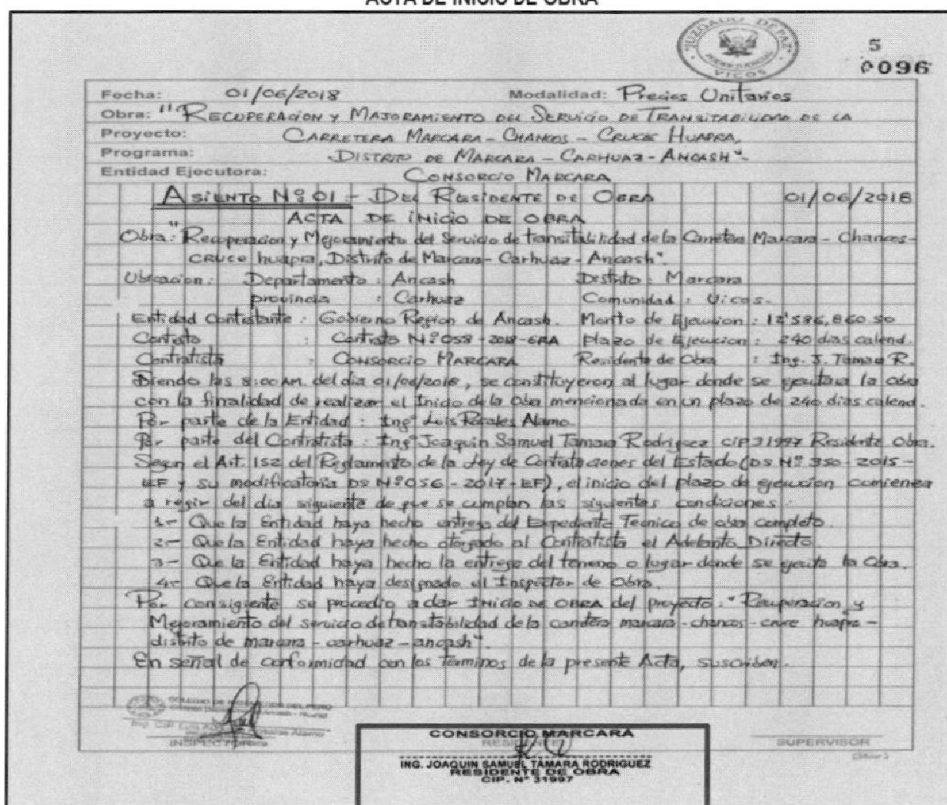 ACTA DE INICIO DE OBRA
JUZGADO DE PAZ
VICOS
5
0096
Fecha: 01/06/2018 Modalidad: Precios Unitarios
Obra: "RECUPERACION Y MAJORAMIENTO DEL SERVICIO DE TRANSITABILIDAD DE LA
Proyecto: CARRETERA MARCARA - CHANCOS - CRUCE HUAPRA,
Programa: DISTRITO DE MARCARA - CARHUAZ - ANCASH".
Entidad Ejecutora: CONSORCIO MARCARA
ASIENTO Nº 01 - DEL RESIDENTE DE OBRA 01/06/2018
ACTA DE INICIO DE OBRA
Obra: "Recuperacion y Mejoramiento del Servicio de transitabilidad de la Carretera Marcara - Chancos -
CRUCE huapra, Distrito de Marcara - Carhuaz - Ancash".
Ubicacion: Departamento: Ancash Distrito: Marcara
provincia : Carhuaz Comunidad: Vicos.
Entidad Contratante: Gobierno Region de Ancash. Monto de Ejecucion: 12'586,860.50
Contrato : Contrato Nº 058-2018-GRA Plazo de Ejecucion: 240 dias calend.
Contratista : CONSORCIO MARCARA Residente de Obra : Ing. J. Tamara R.
Siendo las 8:00 AM. del dia 01/06/2018, se constituyeron al lugar donde se ejecutara la obra
con la finalidad de realizar el Inicio de la Obra mencionada en un plazo de 240 dias calend.
Por parte de la Entidad: Ingº Luis Rosales Alamo.
Por parte del Contratista: Ingº Joaquin Samuel Tamara Rodriguez CIP 31997 Residente Obra.
Segun el Art. 152 del Reglamento de la Ley de Contrataciones del Estado (DS Nº 350-2015-
EF y su modificatoria DS Nº 056-2017-EF), el inicio del plazo de ejecucion comienza
a regir del dia siguiente de que se cumplan las siguientes condiciones:
1- Que la Entidad haya hecho entrega del Expediente Tecnico de obra completo.
2- Que la Entidad haya hecho otorgado al Contratista el Adelanto Directo.
3- Que la Entidad haya hecho la entrega del terreno o lugar donde se ejecuta la Obra.
4- Que la Entidad haya designado el Inspector de Obra.
Por consigiente se procedio a dar INICIO DE OBRA del proyecto: "Recuperacion y
Mejoramiento del servicio de transitabilidad de la carretera marcara - chancos - cruce huapra -
distrito de marcara - carhuaz - ancash".
En señal de conformidad con los terminos de la presente Acta, suscriben.
COLEGIO DE INGENIEROS DEL PERU
INSPECTOR
CONSORCIO MARCARA
RESIDENTE
ING. JOAQUIN SAMUEL TAMARA RODRIGUEZ
RESIDENTE DE OBRA
CIP. Nº 31997
SUPERVISOR